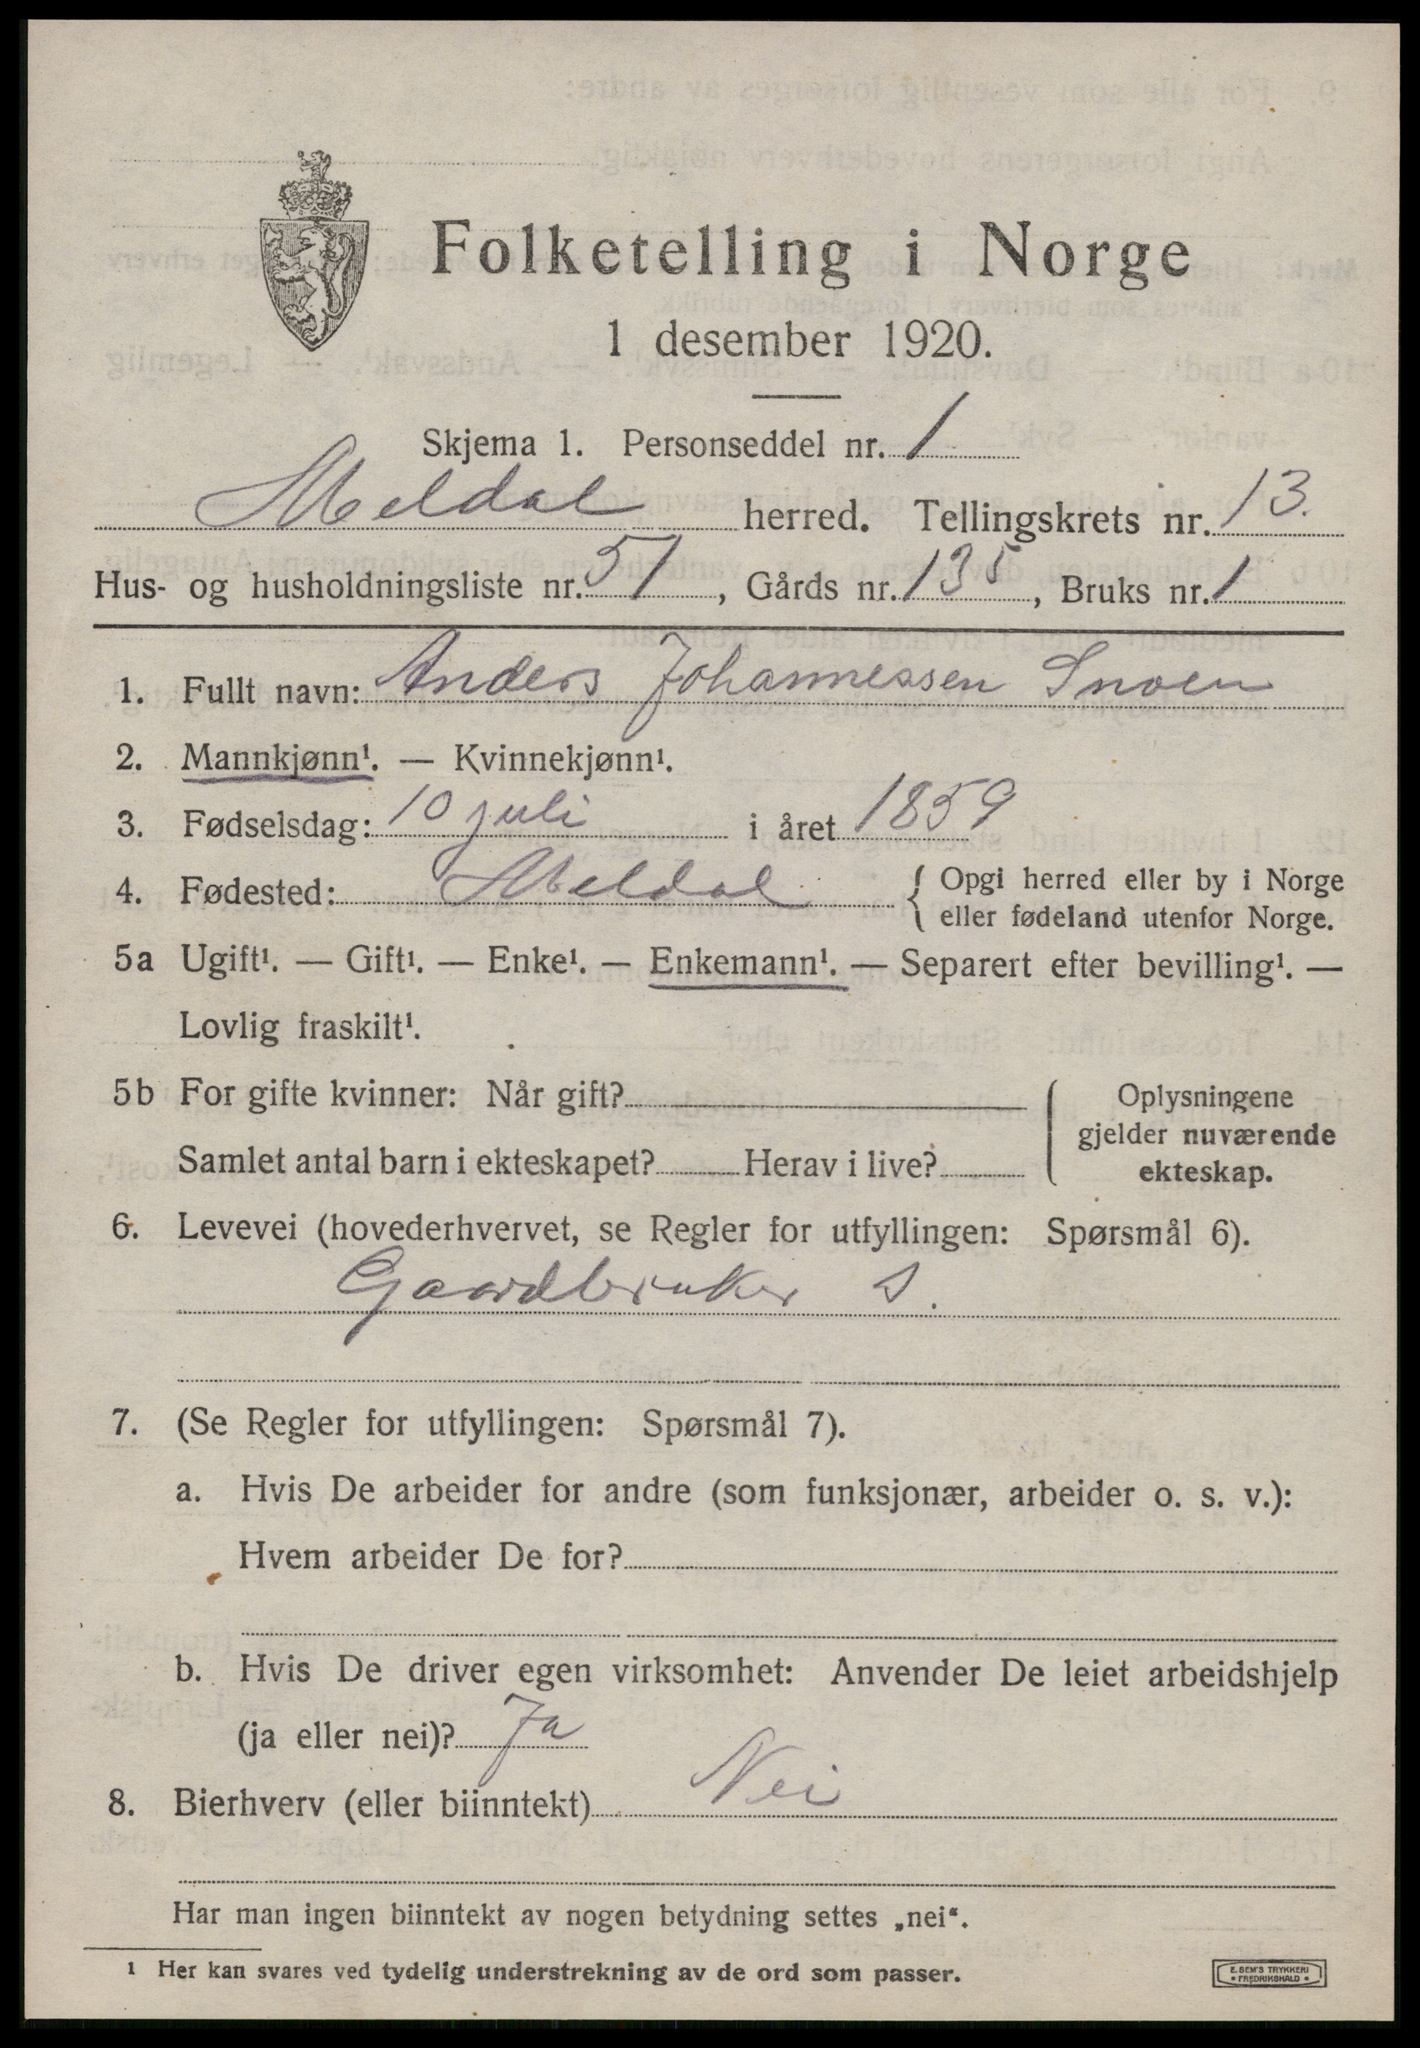 Folketelling i Norge
1 desember 1920.
Skjema 1. Personseddel nr. 1
Meldal herred. Tellingskrets nr. 13.
Hus- og husholdningsliste nr. 51, Gårds nr. 135, Bruks nr. 1
1. Fullt navn: Anders Johannessen Snoen
2. Mannkjønn¹. — Kvinnekjønn¹.
3. Fødselsdag: 10 juli i året 1859
4. Fødested: Meldal { Opgi herred eller by i Norge
eller fødeland utenfor Norge.
5a Ugift¹. — Gift¹. — Enke¹. — Enkemann¹. — Separert efter bevilling¹. —
Lovlig fraskilt¹.
5b For gifte kvinner: Når gift?
Samlet antal barn i ekteskapet? Herav i live?
Oplysningene
gjelder nuværende
ekteskap.
6. Levevei (hovederhvervet, se Regler for utfyllingen: Spørsmål 6).
Gaardbruker S.
7. (Se Regler for utfyllingen: Spørsmål 7).
a. Hvis De arbeider for andre (som funksjonær, arbeider o. s. v.):
Hvem arbeider De for?
b. Hvis De driver egen virksomhet: Anvender De leiet arbeidshjelp
(ja eller nei)? Ja
8. Bierhverv (eller biinntekt) Nei
Har man ingen biinntekt av nogen betydning settes „nei“.
¹ Her kan svares ved tydelig understrekning av de ord som passer.
E. SEM'S TRYKKERI
• FREDRIKSHALD •